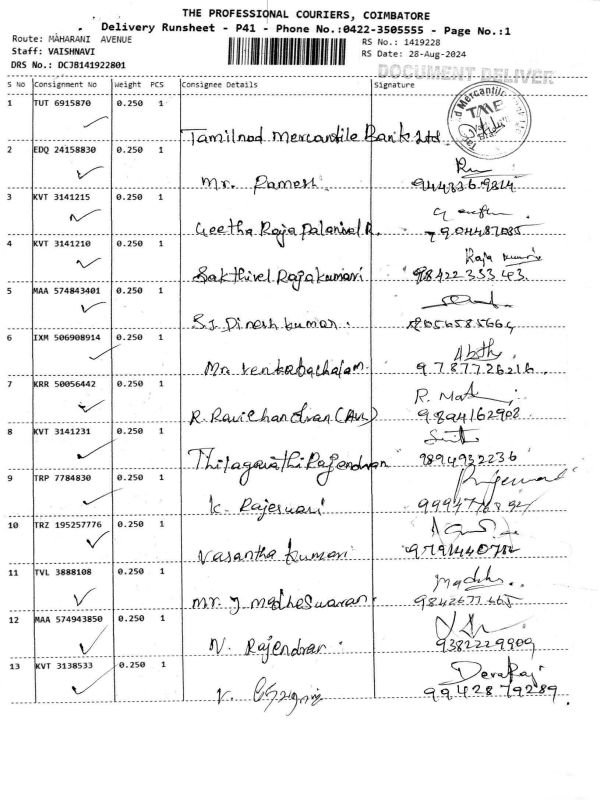 THE PROFESSIONAL COURIERS, COIMBATORE
Delivery Runsheet - P41 - Phone No.:0422-3505555 - Page No.:1
Route: MAHARANI AVENUE
Staff: VAISHNAVI
DRS No.: DCJB141922801
RS No.: 1419228
RS Date: 28-Aug-2024
DOCUMENT DELIVER
S No Consignment No Weight PCS Consignee Details Signature
1 TUT 6915870 0.250 1
Tamilnad Mercantile Bank Ltd.
TMB
2 EDQ 24158830 0.250 1
Mr. Ramesh
3 KVT 3141215 0.250 1
Geetha Raja Palanivel R.
4 KVT 3141210 0.250 1
Sakthivel Rajakumari
Raja
98422 333 43
5 MAA 574843401 0.250 1
S.J. Dinesh kumar
8056585664
6 IXM 506908914 0.250 1
Mr. Venkatachalam
9787726216
7 KRR 50056442 0.250 1
R. Ravichandran
9894162908
8 KVT 3141231 0.250 1
Thilagavathi Rajendran
9894932236
9 TRP 7784830 0.250 1
K. Rajeswari
10 TRZ 195257776 0.250 1
Vasantha Kumari
11 TVL 3888108 0.250 1
Mr. J Madheswaran
12 MAA 574943850 0.250 1
N. Rajendran
9382229909
13 KVT 3138533 0.250 1
Devaraj
9942879289